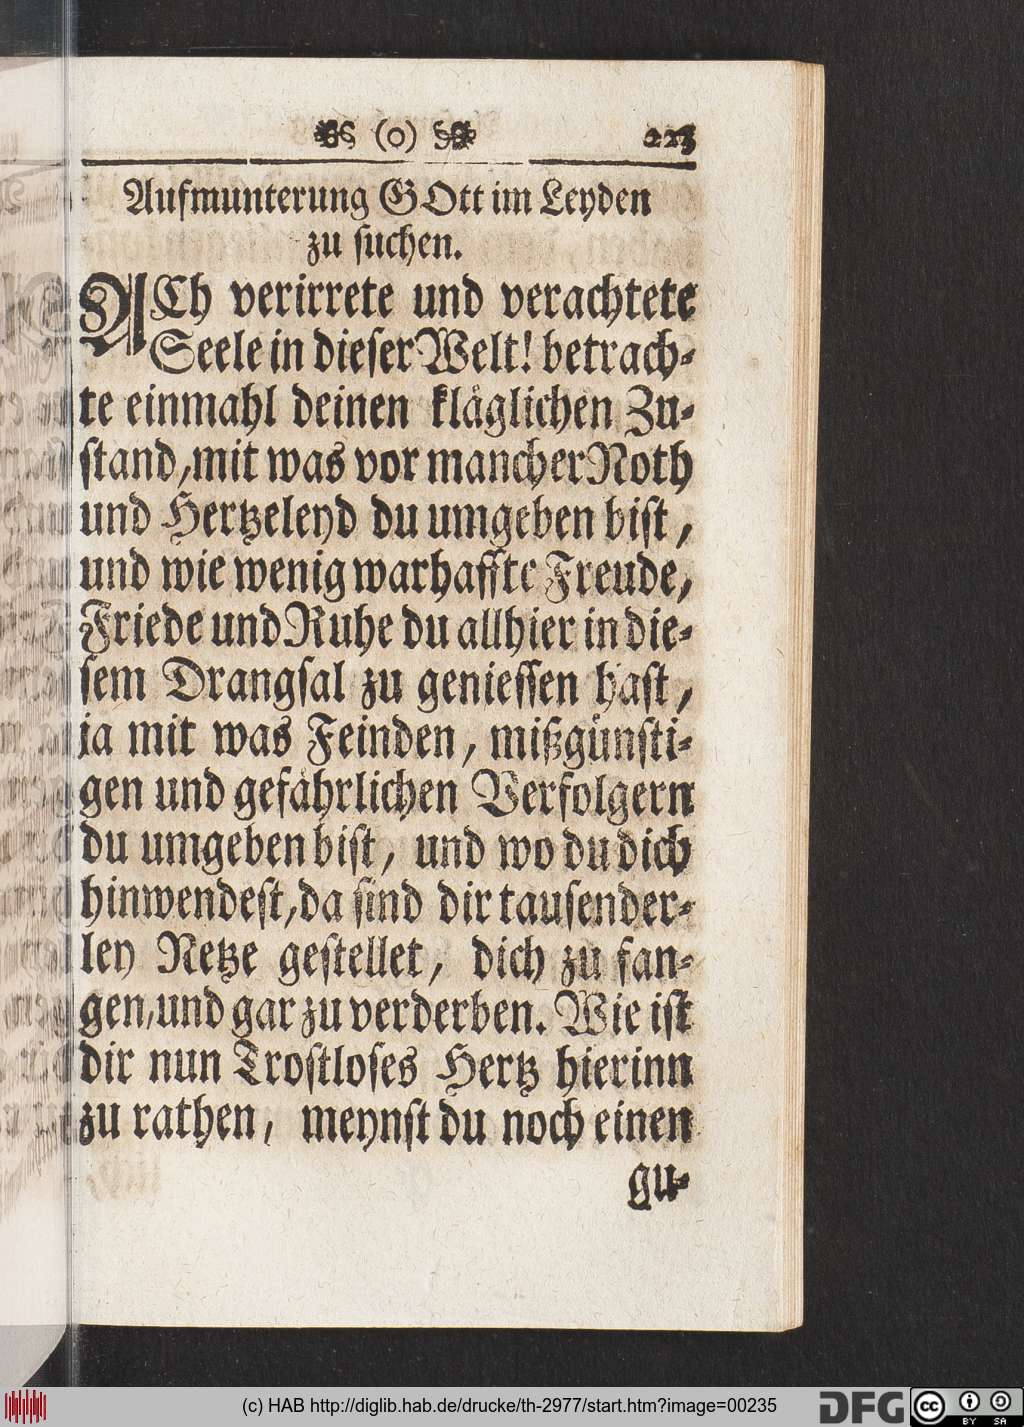 (o) 223
Aufmunterung GOtt im Leyden
zu suchen.
ACh verirrete und verachtete
Seele in dieser Welt! betrach-
te einmahl deinen kläglichen Zu-
stand, mit was vor mancher Noth
und Hertzeleyd du umgeben bist,
und wie wenig warhaffte Freude,
Friede und Ruhe du allhier in die-
sem Drangsal zu geniessen hast,
ja mit was Feinden, mißgünsti-
gen und gefährlichen Verfolgern
du umgeben bist, und wo du dich
hinwendest, da sind dir tausender-
ley Netze gestellet, dich zu fan-
gen, und gar zu verderben. Wie ist
dir nun Trostloses Hertz hierinn
zu rathen, meynst du noch einen
gu-
(c) HAB http://diglib.hab.de/drucke/th-2977/start.htm?image=00235
DFG
cc BY SA